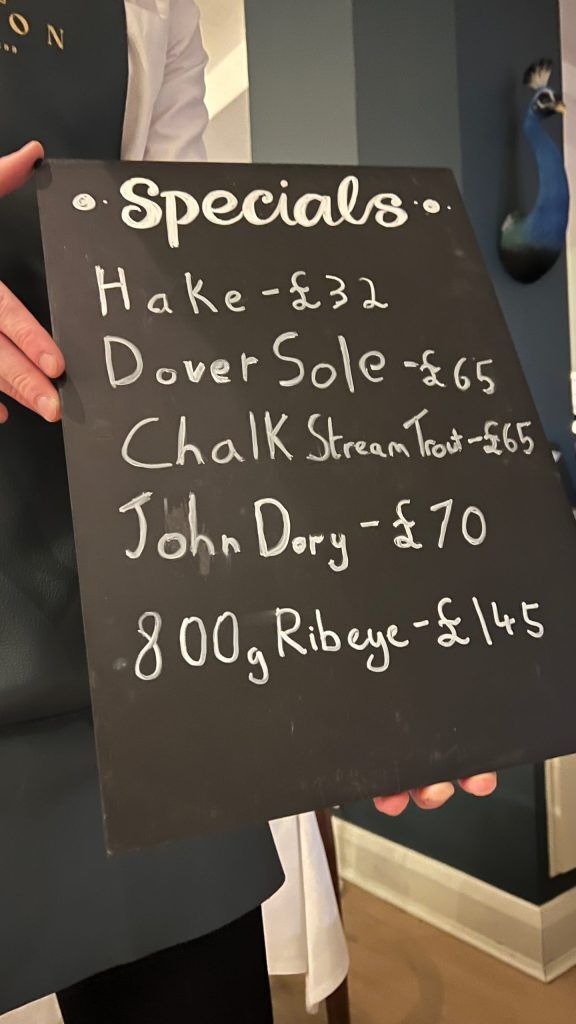 ON
Specials
Hake - £32
Dover Sole - £65
Chalk Stream Trout - £65
John Dory - £70
800g Ribeye - £145